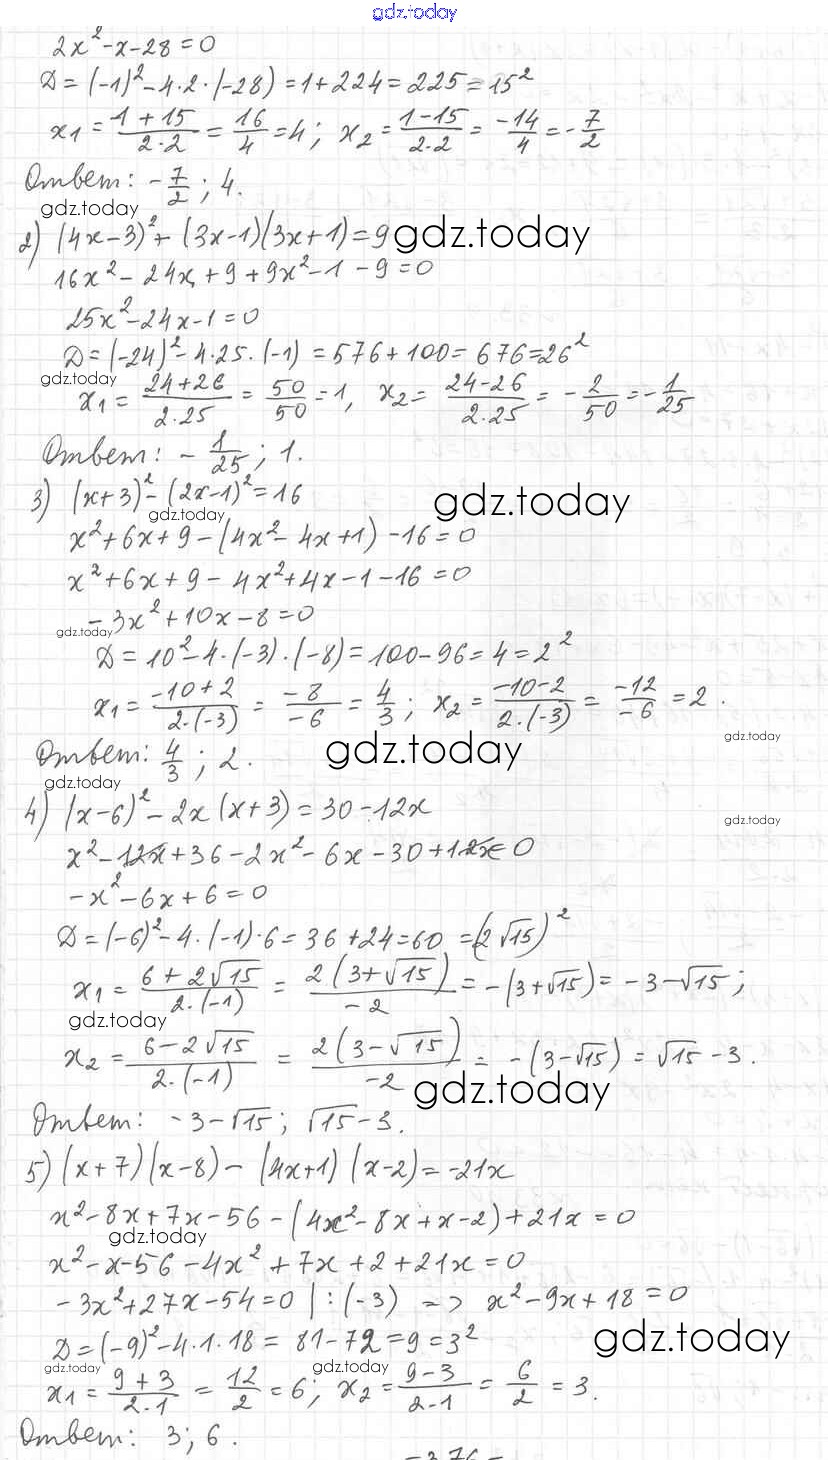 gdz.today
2x² - x - 28 = 0
D = (-1)² - 4·2·(-28) = 1 + 224 = 225 = 15²
x₁ = (1 + 15)/(2·2) = 16/4 = 4; x₂ = (1 - 15)/(2·2) = -14/4 = -7/2
Ответ: -7/2; 4.
gdz.today
2) (4x - 3)² + (3x - 1)(3x + 1) = 9 gdz.today
16x² - 24x + 9 + 9x² - 1 - 9 = 0
25x² - 24x - 1 = 0
D = (-24)² - 4·25·(-1) = 576 + 100 = 676 = 26²
gdz.today
x₁ = (24 + 26)/(2·25) = 50/50 = 1, x₂ = (24 - 26)/(2·25) = -2/50 = -1/25
Ответ: -1/25; 1.
3) (x + 3)² - (2x - 1)² = 16 gdz.today
gdz.today
x² + 6x + 9 - (4x² - 4x + 1) - 16 = 0
x² + 6x + 9 - 4x² + 4x - 1 - 16 = 0
-3x² + 10x - 8 = 0
gdz.today
D = 10² - 4·(-3)·(-8) = 100 - 96 = 4 = 2²
x₁ = (-10 + 2)/(2·(-3)) = -8/-6 = 4/3; x₂ = (-10 - 2)/(2·(-3)) = -12/-6 = 2.
gdz.today
Ответ: 4/3; 2. gdz.today
gdz.today
4) (x - 6)² - 2x(x + 3) = 30 - 12x
gdz.today
x² - 12x + 36 - 2x² - 6x - 30 + 12x = 0
-x² - 6x + 6 = 0
D = (-6)² - 4·(-1)·6 = 36 + 24 = 60 = (2√15)²
x₁ = (6 + 2√15)/(2·(-1)) = 2(3 + √15)/-2 = -(3 + √15) = -3 - √15;
gdz.today
x₂ = (6 - 2√15)/(2·(-1)) = 2(3 - √15)/-2 = -(3 - √15) = √15 - 3.
gdz.today
Ответ: -3 - √15; √15 - 3.
5) (x + 7)(x - 8) - (4x + 1)(x - 2) = -21x
x² - 8x + 7x - 56 - (4x² - 8x + x - 2) + 21x = 0
gdz.today
x² - x - 56 - 4x² + 7x + 2 + 21x = 0
-3x² + 27x - 54 = 0 | : (-3) => x² - 9x + 18 = 0
D = (-9)² - 4·1·18 = 81 - 72 = 9 = 3² gdz.today
gdz.today gdz.today
x₁ = (9 + 3)/(2·1) = 12/2 = 6; x₂ = (9 - 3)/(2·1) = 6/2 = 3.
Ответ: 3; 6.